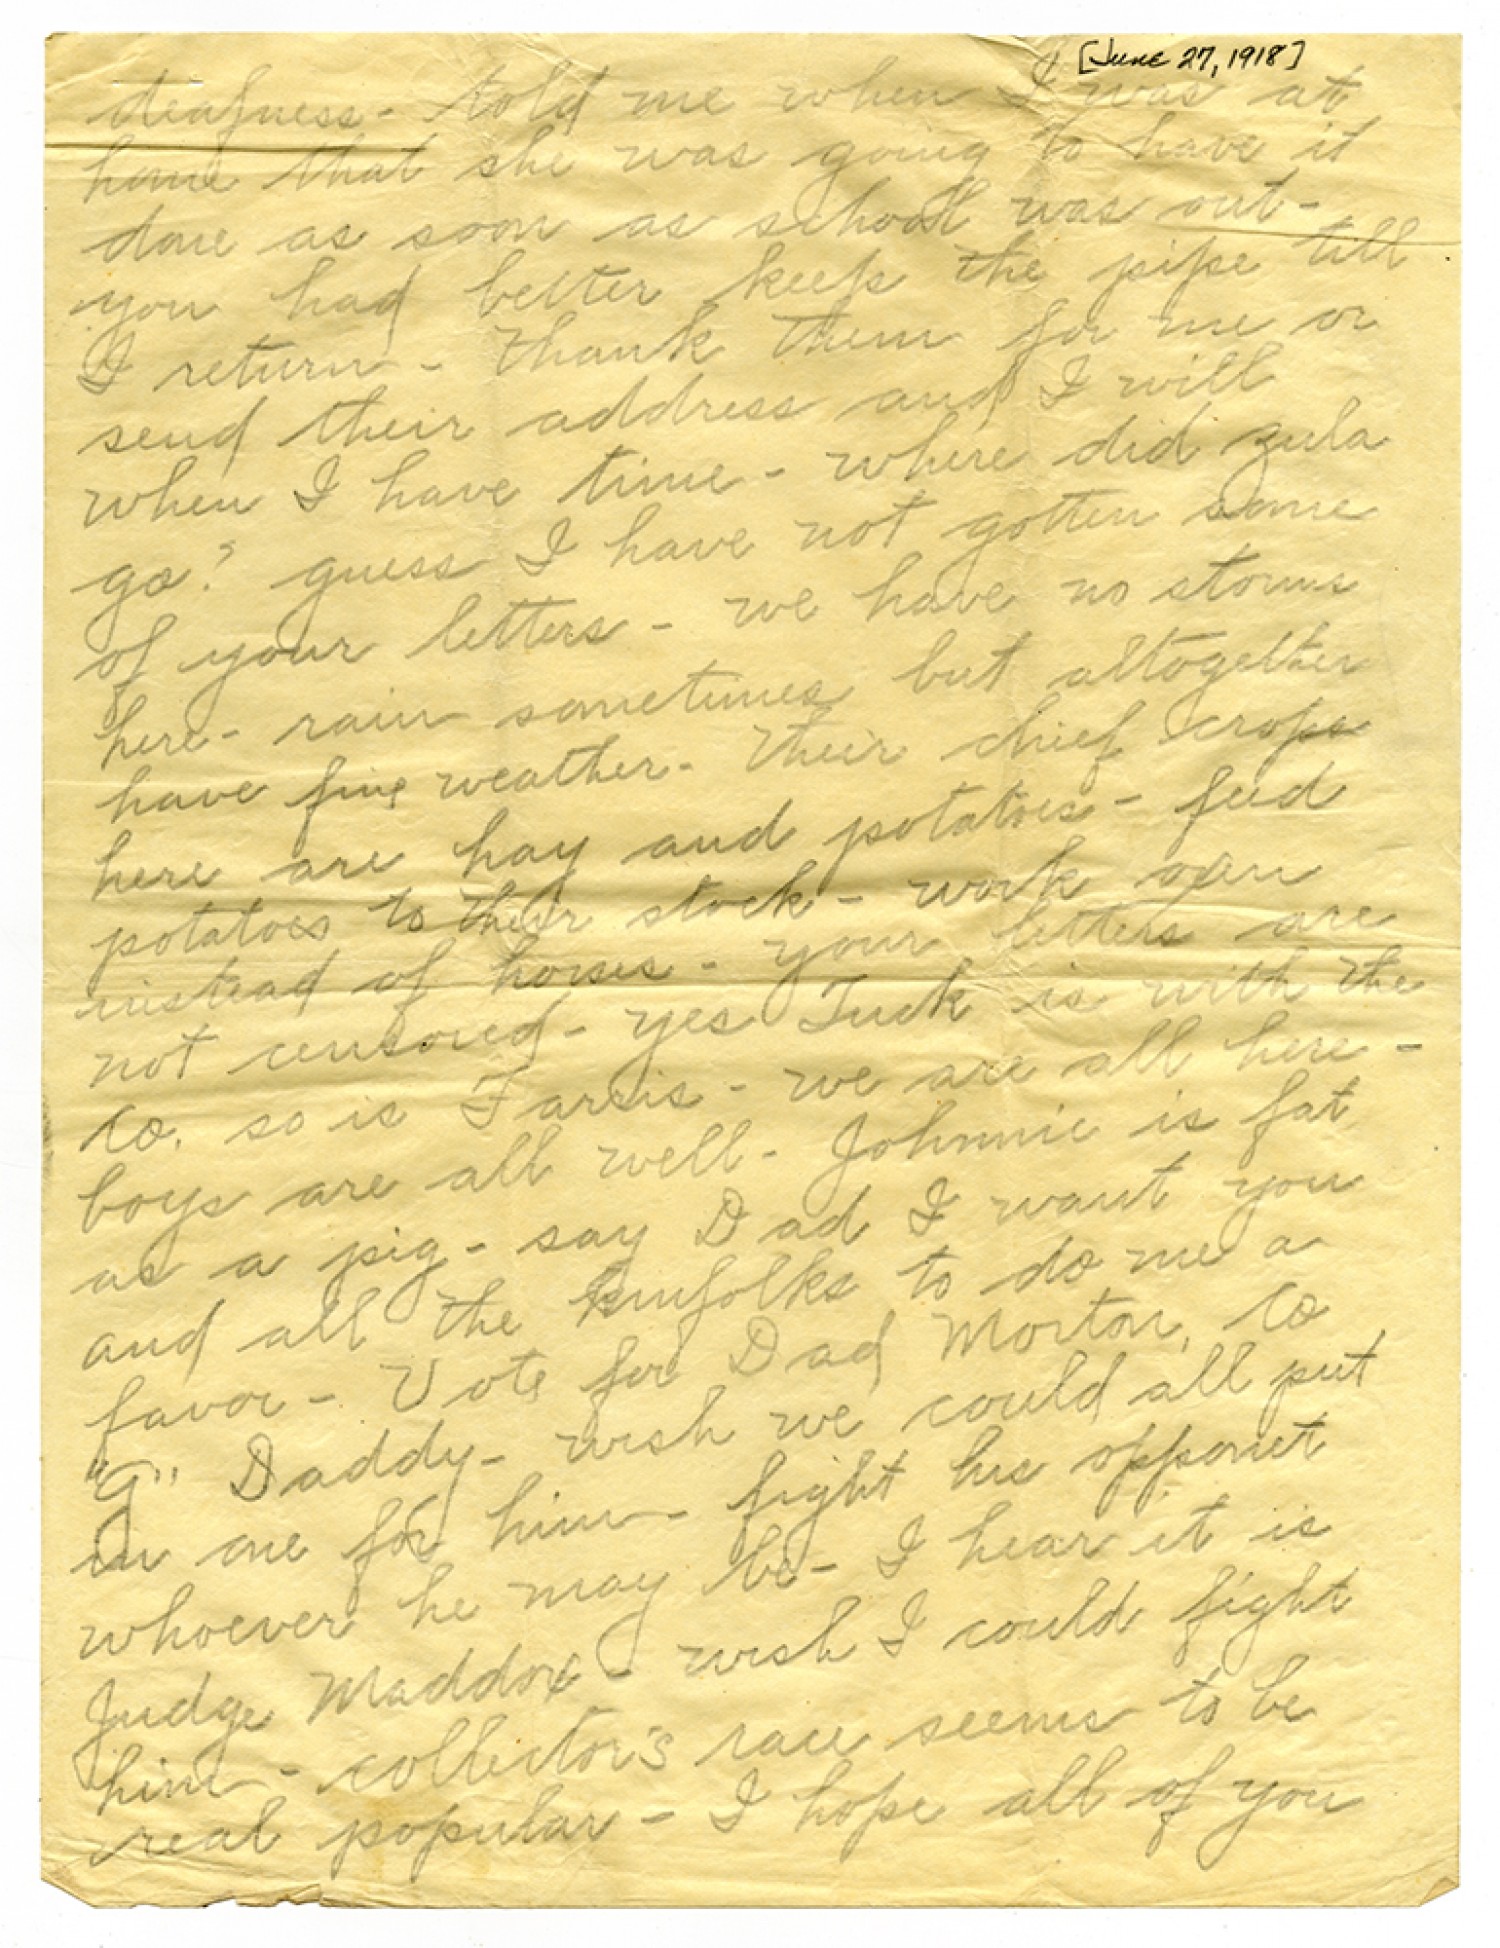 [June 27, 1918]
deafness - told me when I was at
home that she was going to have it
done as soon as school was out -
you had better keep the pipe till
I return - Thank them for me or
send their address and I will
when I have time - where did Zula
go? guess I have not gotten some
of your letters - we have no storms
here - rain sometimes but altogether
have fine weather - Their chief crops
here are hay and potatoes - feed
potatoes to their stock - work oxen
instead of horses - your letters are
not censored - yes Tuck is with the
Co. so is Farris - we are all here -
boys are all well - Johnnie is fat
as a pig - say Dad I want you
and all the kinfolks to do me a
favor - Vote for Dad Morton, Co
"G" Daddy - wish we could all put
in one for him - fight his opponet
whoever he may be - I hear it is
Judge Maddox - wish I could fight
him - collector's race seems to be
real popular - I hope all of you